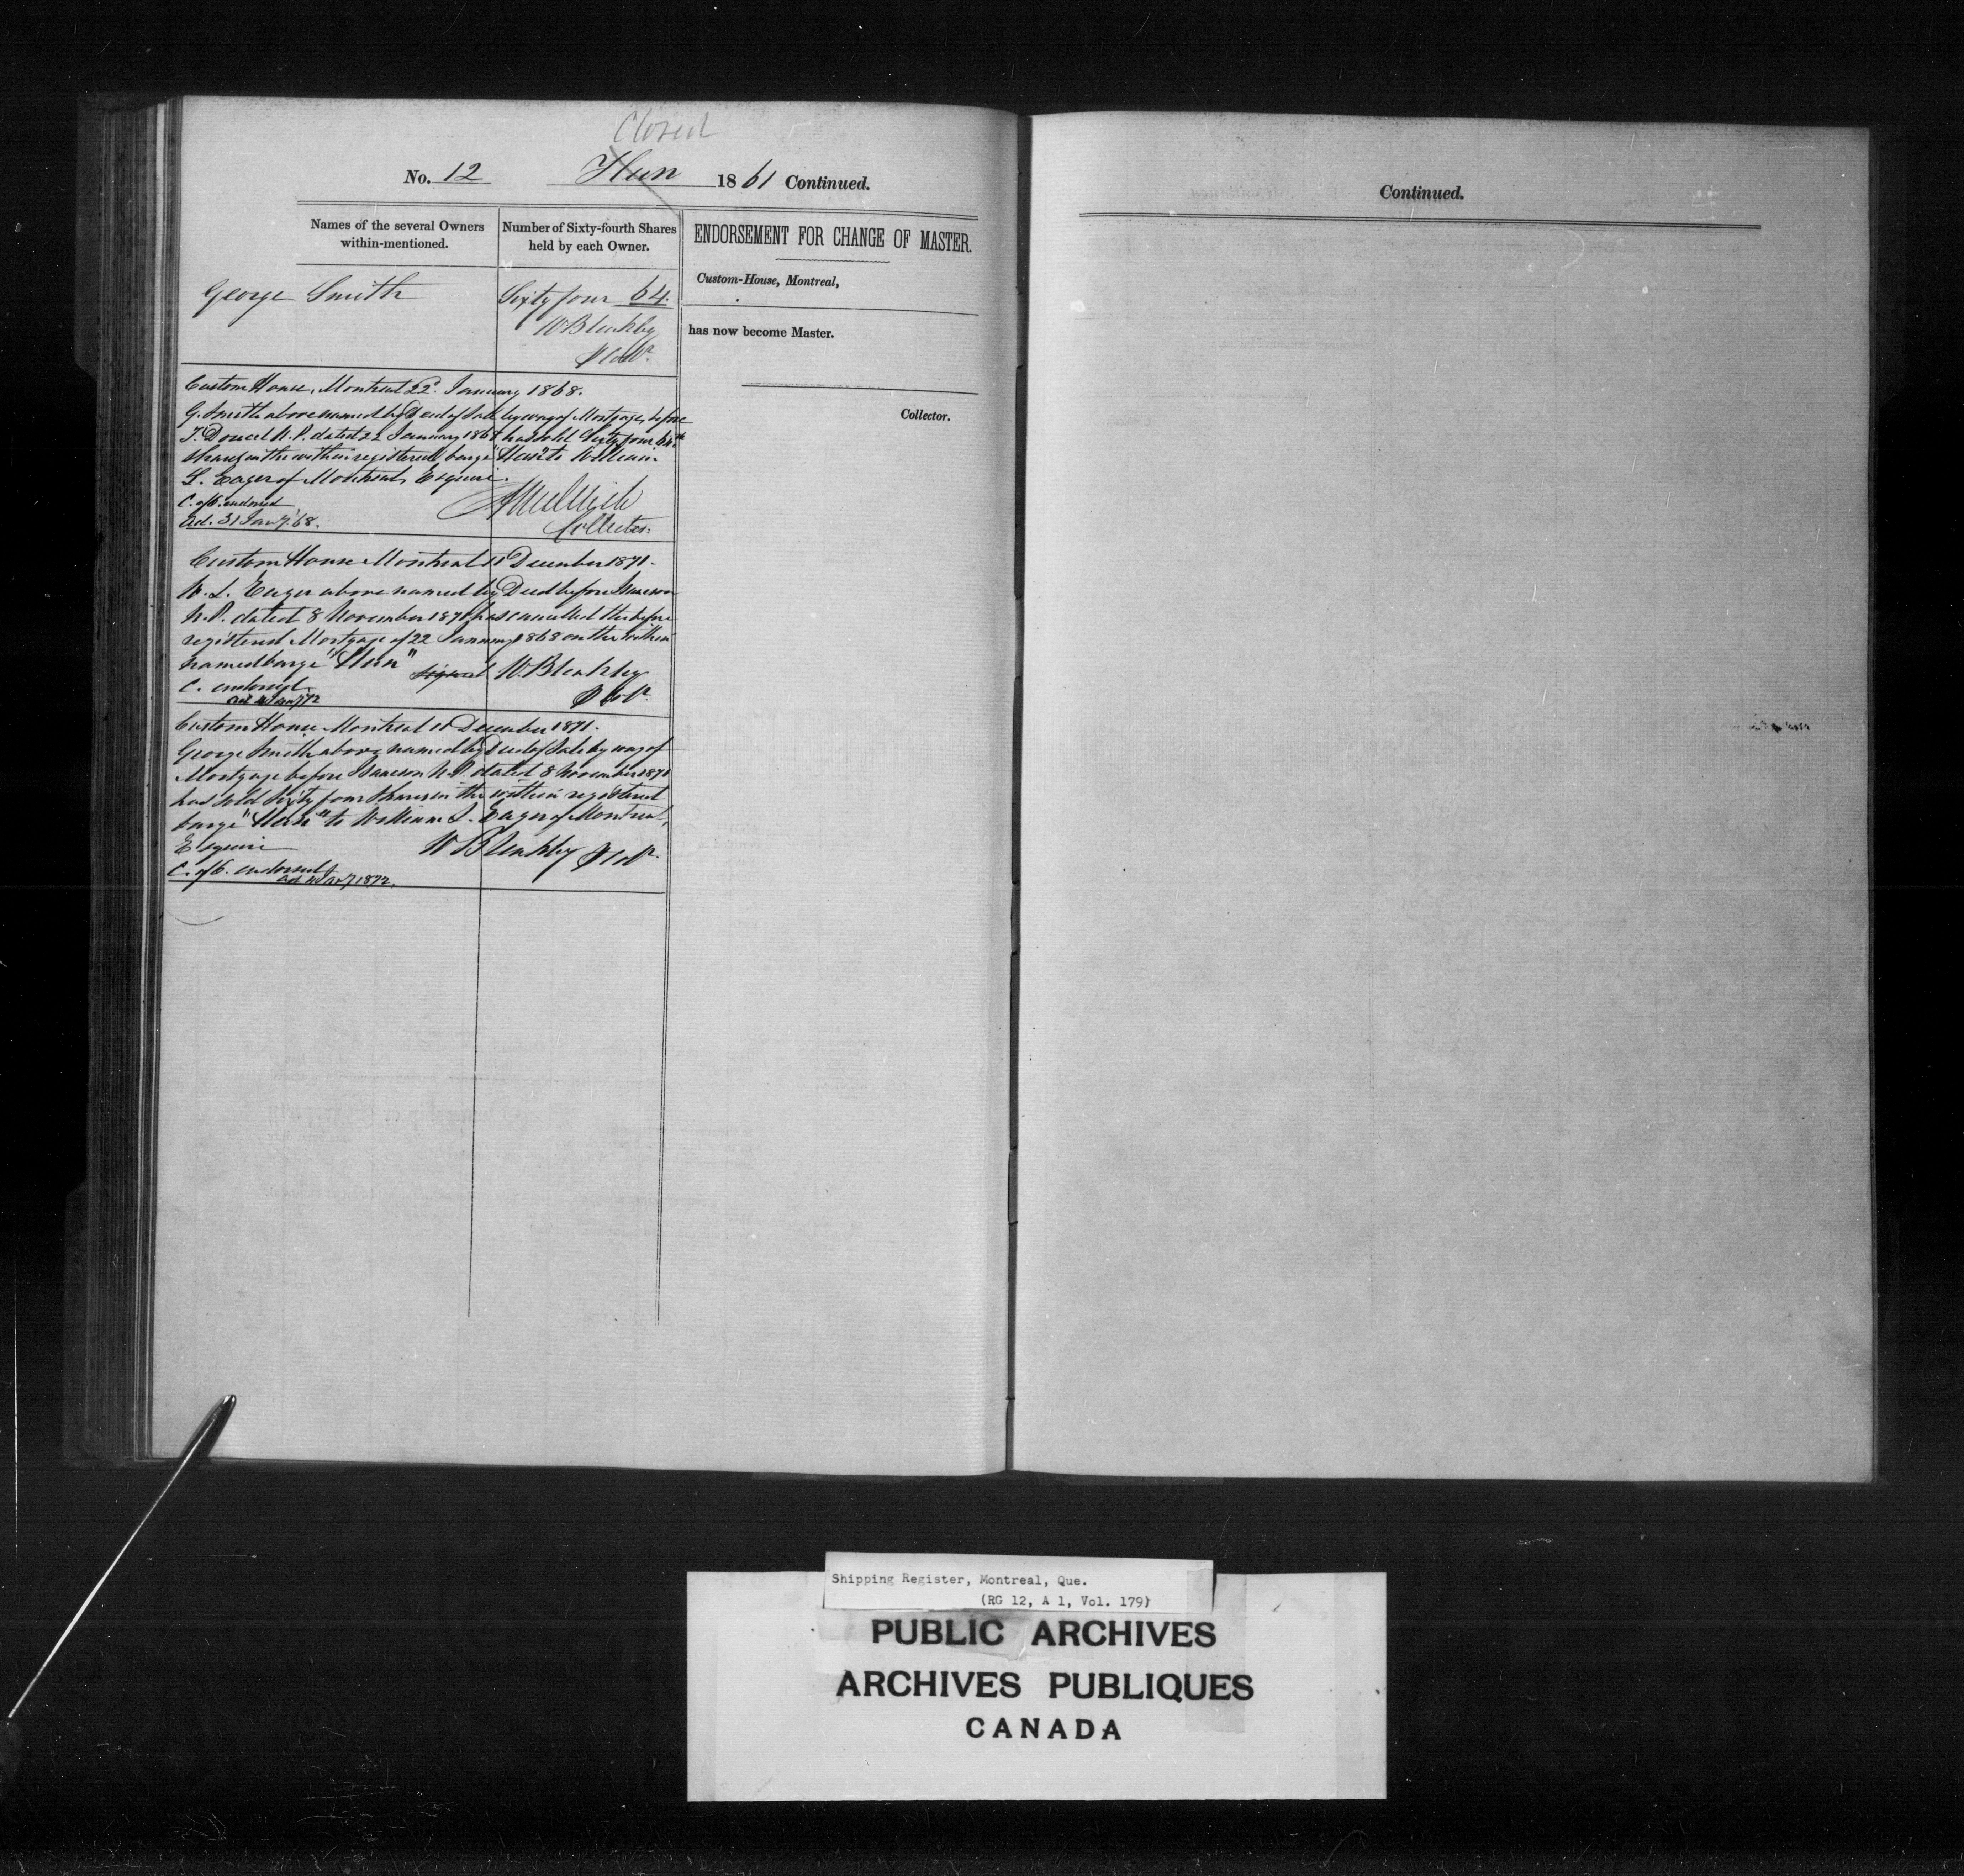 Closed
No. 12 Hun 1861 Continued.
Names of the several Owners within-mentioned.
Number of Sixty-fourth Shares held by each Owner.
ENDORSEMENT FOR CHANGE OF MASTER.
George Smith
Sixty four 64.
W Bleakley
Custom-House, Montreal,
has now become Master.
Collector.
Custom House, Montreal 22d. January 1868.
G. Smith above named by Deed of Sale by way of Mortgage, before
T. Doucet N.P. dated 22 January 1868 has sold Sixty four 64th
Shares in the within registered barge "Hun" to William
L. Eager of Montreal, Esquire.
C. of O. endorsed
31 Jany 68.
Collector.
Custom House Montreal 11 December 1871.
W. L. Eager above named by Deed before Isaacson
N.P. dated 8 November 1871 has cancelled the before
registered Mortgage of 22 January 1868 on the within
named barge "Hun" signed W. Bleakley
C. endorsed
Custom House Montreal 11 December 1871.
George Smith above named by Deed of Sale by way of
Mortgage before Isaacson N.P. dated 8 November 1871
has sold Sixty four Shares in the within registered
barge "Hun" to William L. Eager of Montreal,
Esquire W Bleakley
C. of O. endorsed
Continued.
Shipping Register, Montreal, Que.
(RG 12, A 1, Vol. 179)
PUBLIC ARCHIVES
ARCHIVES PUBLIQUES
CANADA